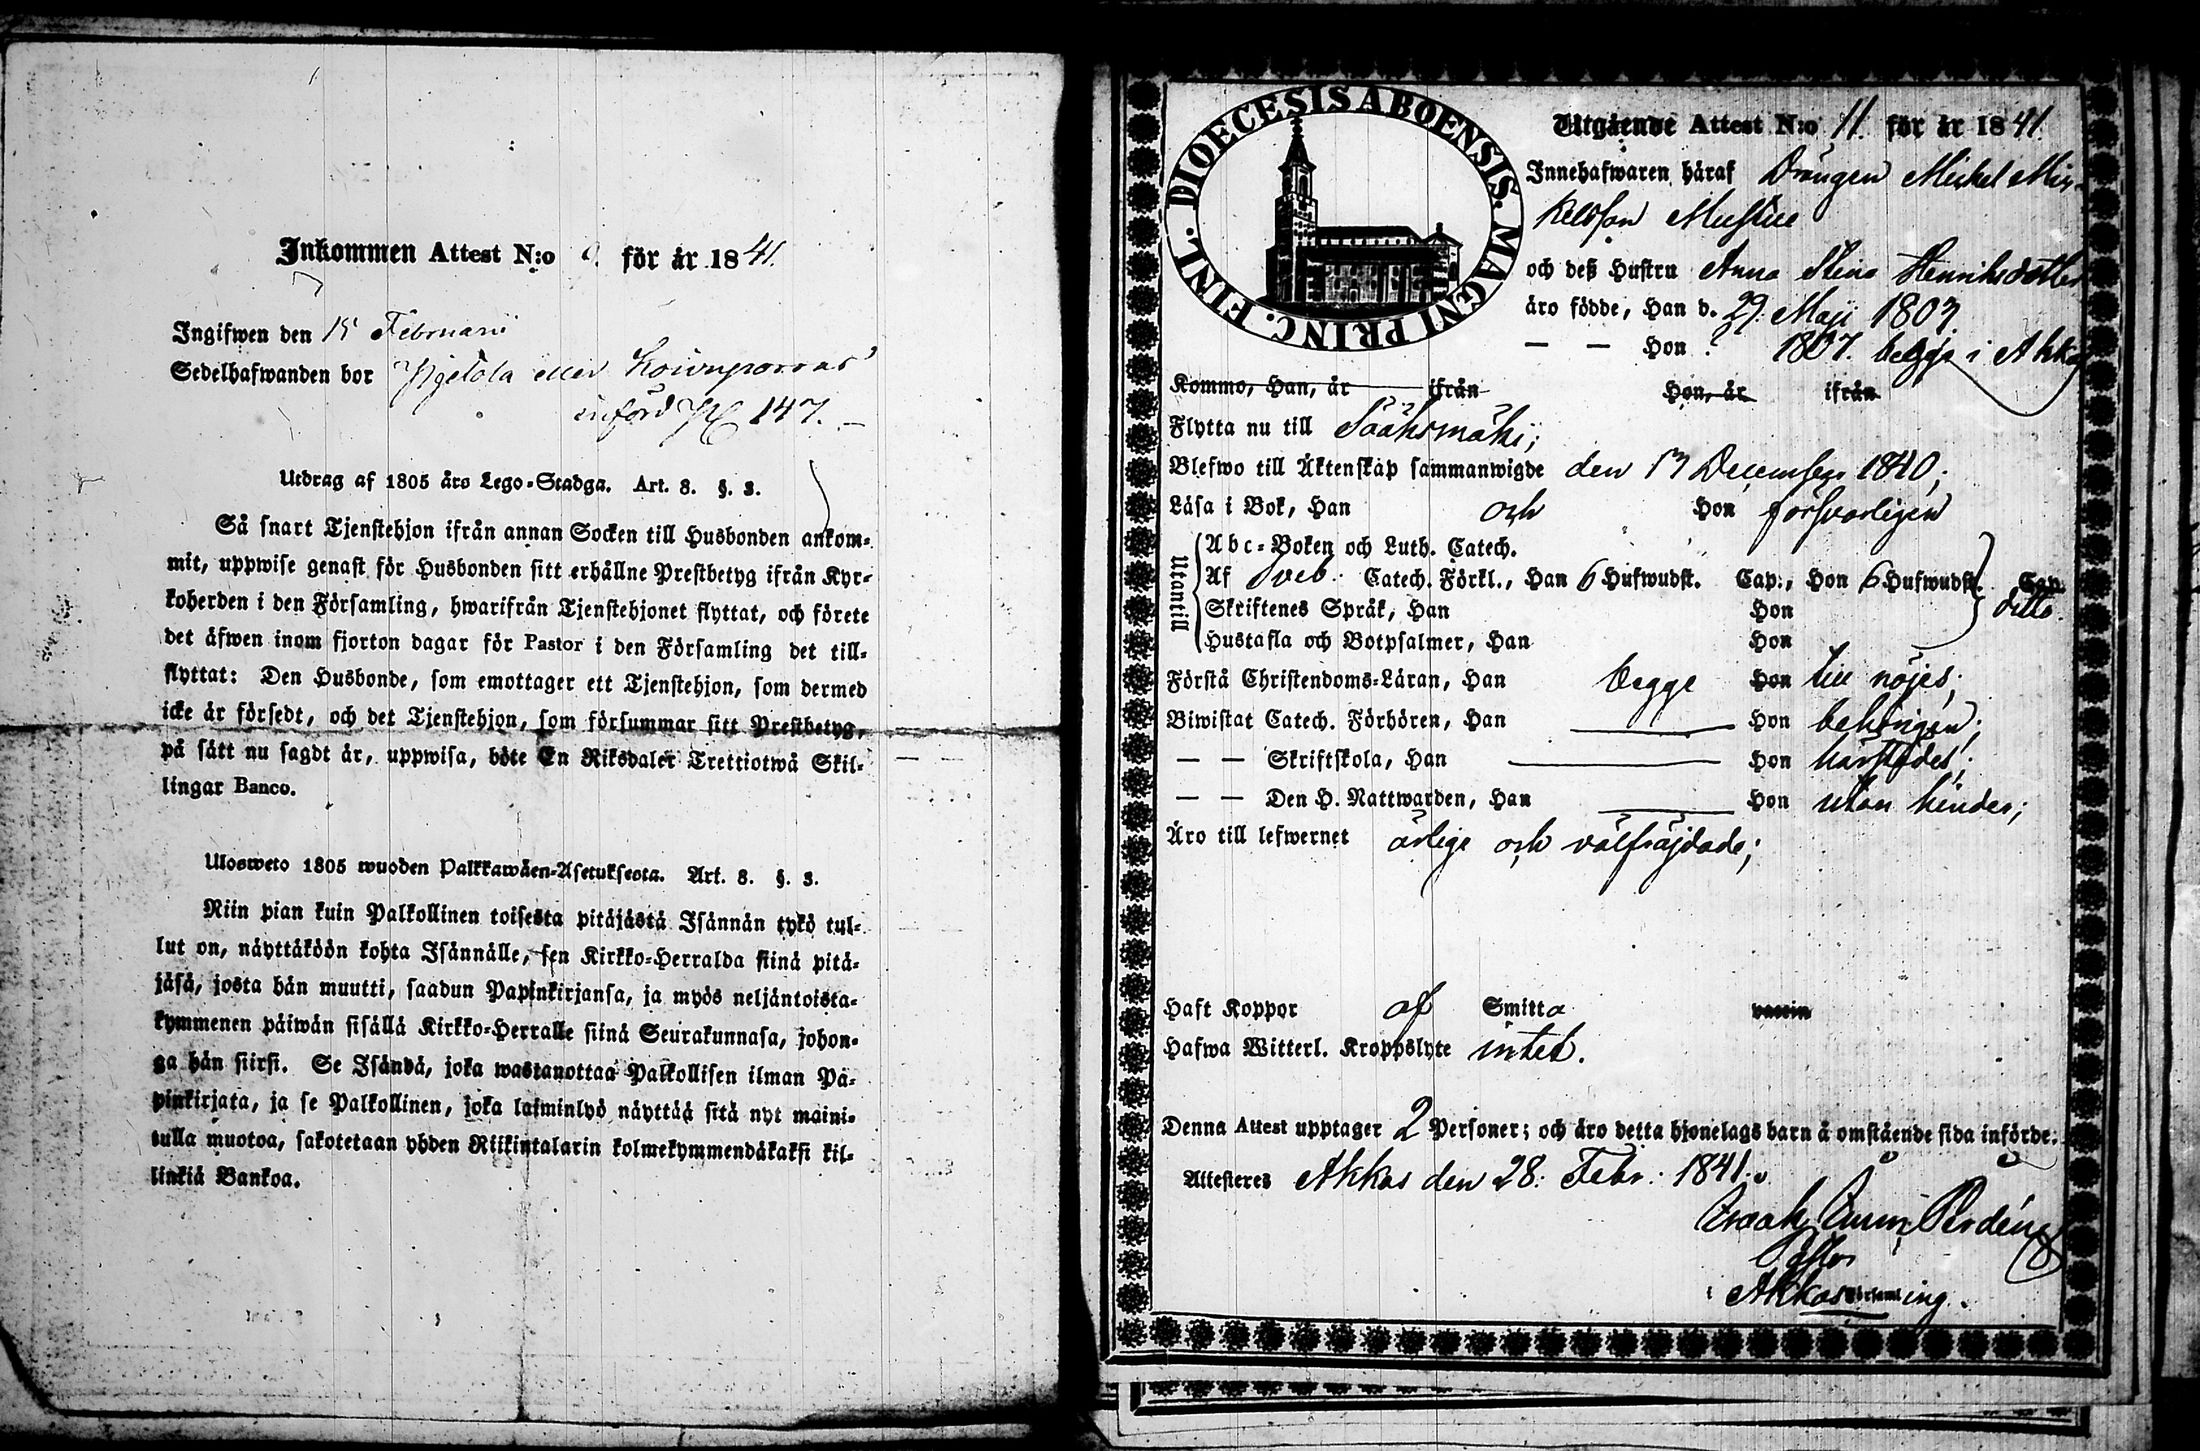 Inkommen Attest N:o 9. för år 1841.
Ingifwen den 15 Februarii
Sedelhafwanden bor eller
införd 147.
Utdrag af 1805 års Lego-Stadga. Art. 8. §. 3.
Så snart Tjenstehjon ifrån annan Socken till Husbonden ankom-
mit, uppwise genast för Husbonden sitt erhållne Prestbetyg ifrån Kyr-
koherden i den Församling, hwarifrån Tjenstehjonet flyttat, och förete
det äfwen inom fjorton dagar för Pastor i den Församling det till-
flyttat: Den Husbonde, som emottager ett Tjenstehjon, som dermed
icke är försedt, och det Tjenstehjon, som försummar sitt Prestbetyg,
på sätt nu sagdt är, uppwisa, böte En Riksdaler Trettiotwå Skil-
lingar Banco.
Ulosweto 1805 wuoden Palkkawäen-Asetuksesta. Art. 8. §. 3.
Niin pian kuin Palkollinen toisesta pitäjästä Isännän tykö tul-
lut on, näyttäköön kohta Isännälle, sen Kirkko-Herralda siinä pitä-
jäsä, josta hän muutti, saadun Papinkirjansa, ja myös neljäntoista-
kymmenen päiwän sisällä Kirkko-Herralle siinä Seurakunnasa, johon-
ga hän siirsi. Se Isändä, joka wastanottaa Palkollisen ilman Pa-
pinkirjata, ja se Palkollinen, joka laiminlyö näyttää sitä nyt maini-
tulla muotoa, sakotetaan yhden Riikintalarin kolmekymmendäkaksi kil-
linkiä Bankoa.
DIOECESIS ABOENSIS. MAGNI PRINC. FINL.
Utgående Attest N:o 11. för år 1841.
Innehafwaren häraf Drängen Michel Mic-
kelsson
och deß Hustru Anna Stina Henriksdotter
äro födde, Han d. 29. Maji 1803.
— — Hon 1807. begge i Akkas
Kommo, Han, år ifrån Hon, år ifrån
Flytta nu till Sääksmäki;
Blefwo till Äktenskap sammanwigde den 13 December 1840;
Läsa i Bok, Han och Hon försvarligen
Utantill
Abc-Boken och Luth. Catech.
Af Sveb. Catech. Förkl., Han 6 Hufwudst. Cap., Hon 6 Hufwudst. Cap. ditto.
Skriftenes Språk, Han Hon
Hustafla och Botpsalmer, Han Hon
Förstå Christendoms-Läran, Han begge Hon till nöjes;
Biwistat Catech. Förhören, Han Hon behörigen;
— — Skriftskola, Han Hon härstädes;
— — Den H. Nattwarden, Han Hon utan hinder;
Äro till lefwernet ärlige och välfräjdade;
Haft Koppor af Smitta vaccin
Hafwa Witterl. Kroppslyte intet.
Denna Attest upptager 2 Personer; och äro detta hjonelags barn å omstående sida införde.
Attesteres Akkas den 28. Febr. 1841.
Isaak
Pastor
i Akkas Församling.